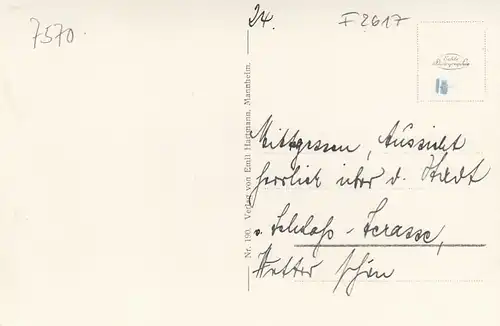 7570.
24.
F 2617
Echte Photographie
Nr. 190. Verlag von Emil Hartmann, Mannheim.
Mittgessen, Aussicht
herrlich über d. Stadt
v. Schloß-Terasse,
Wetter schön